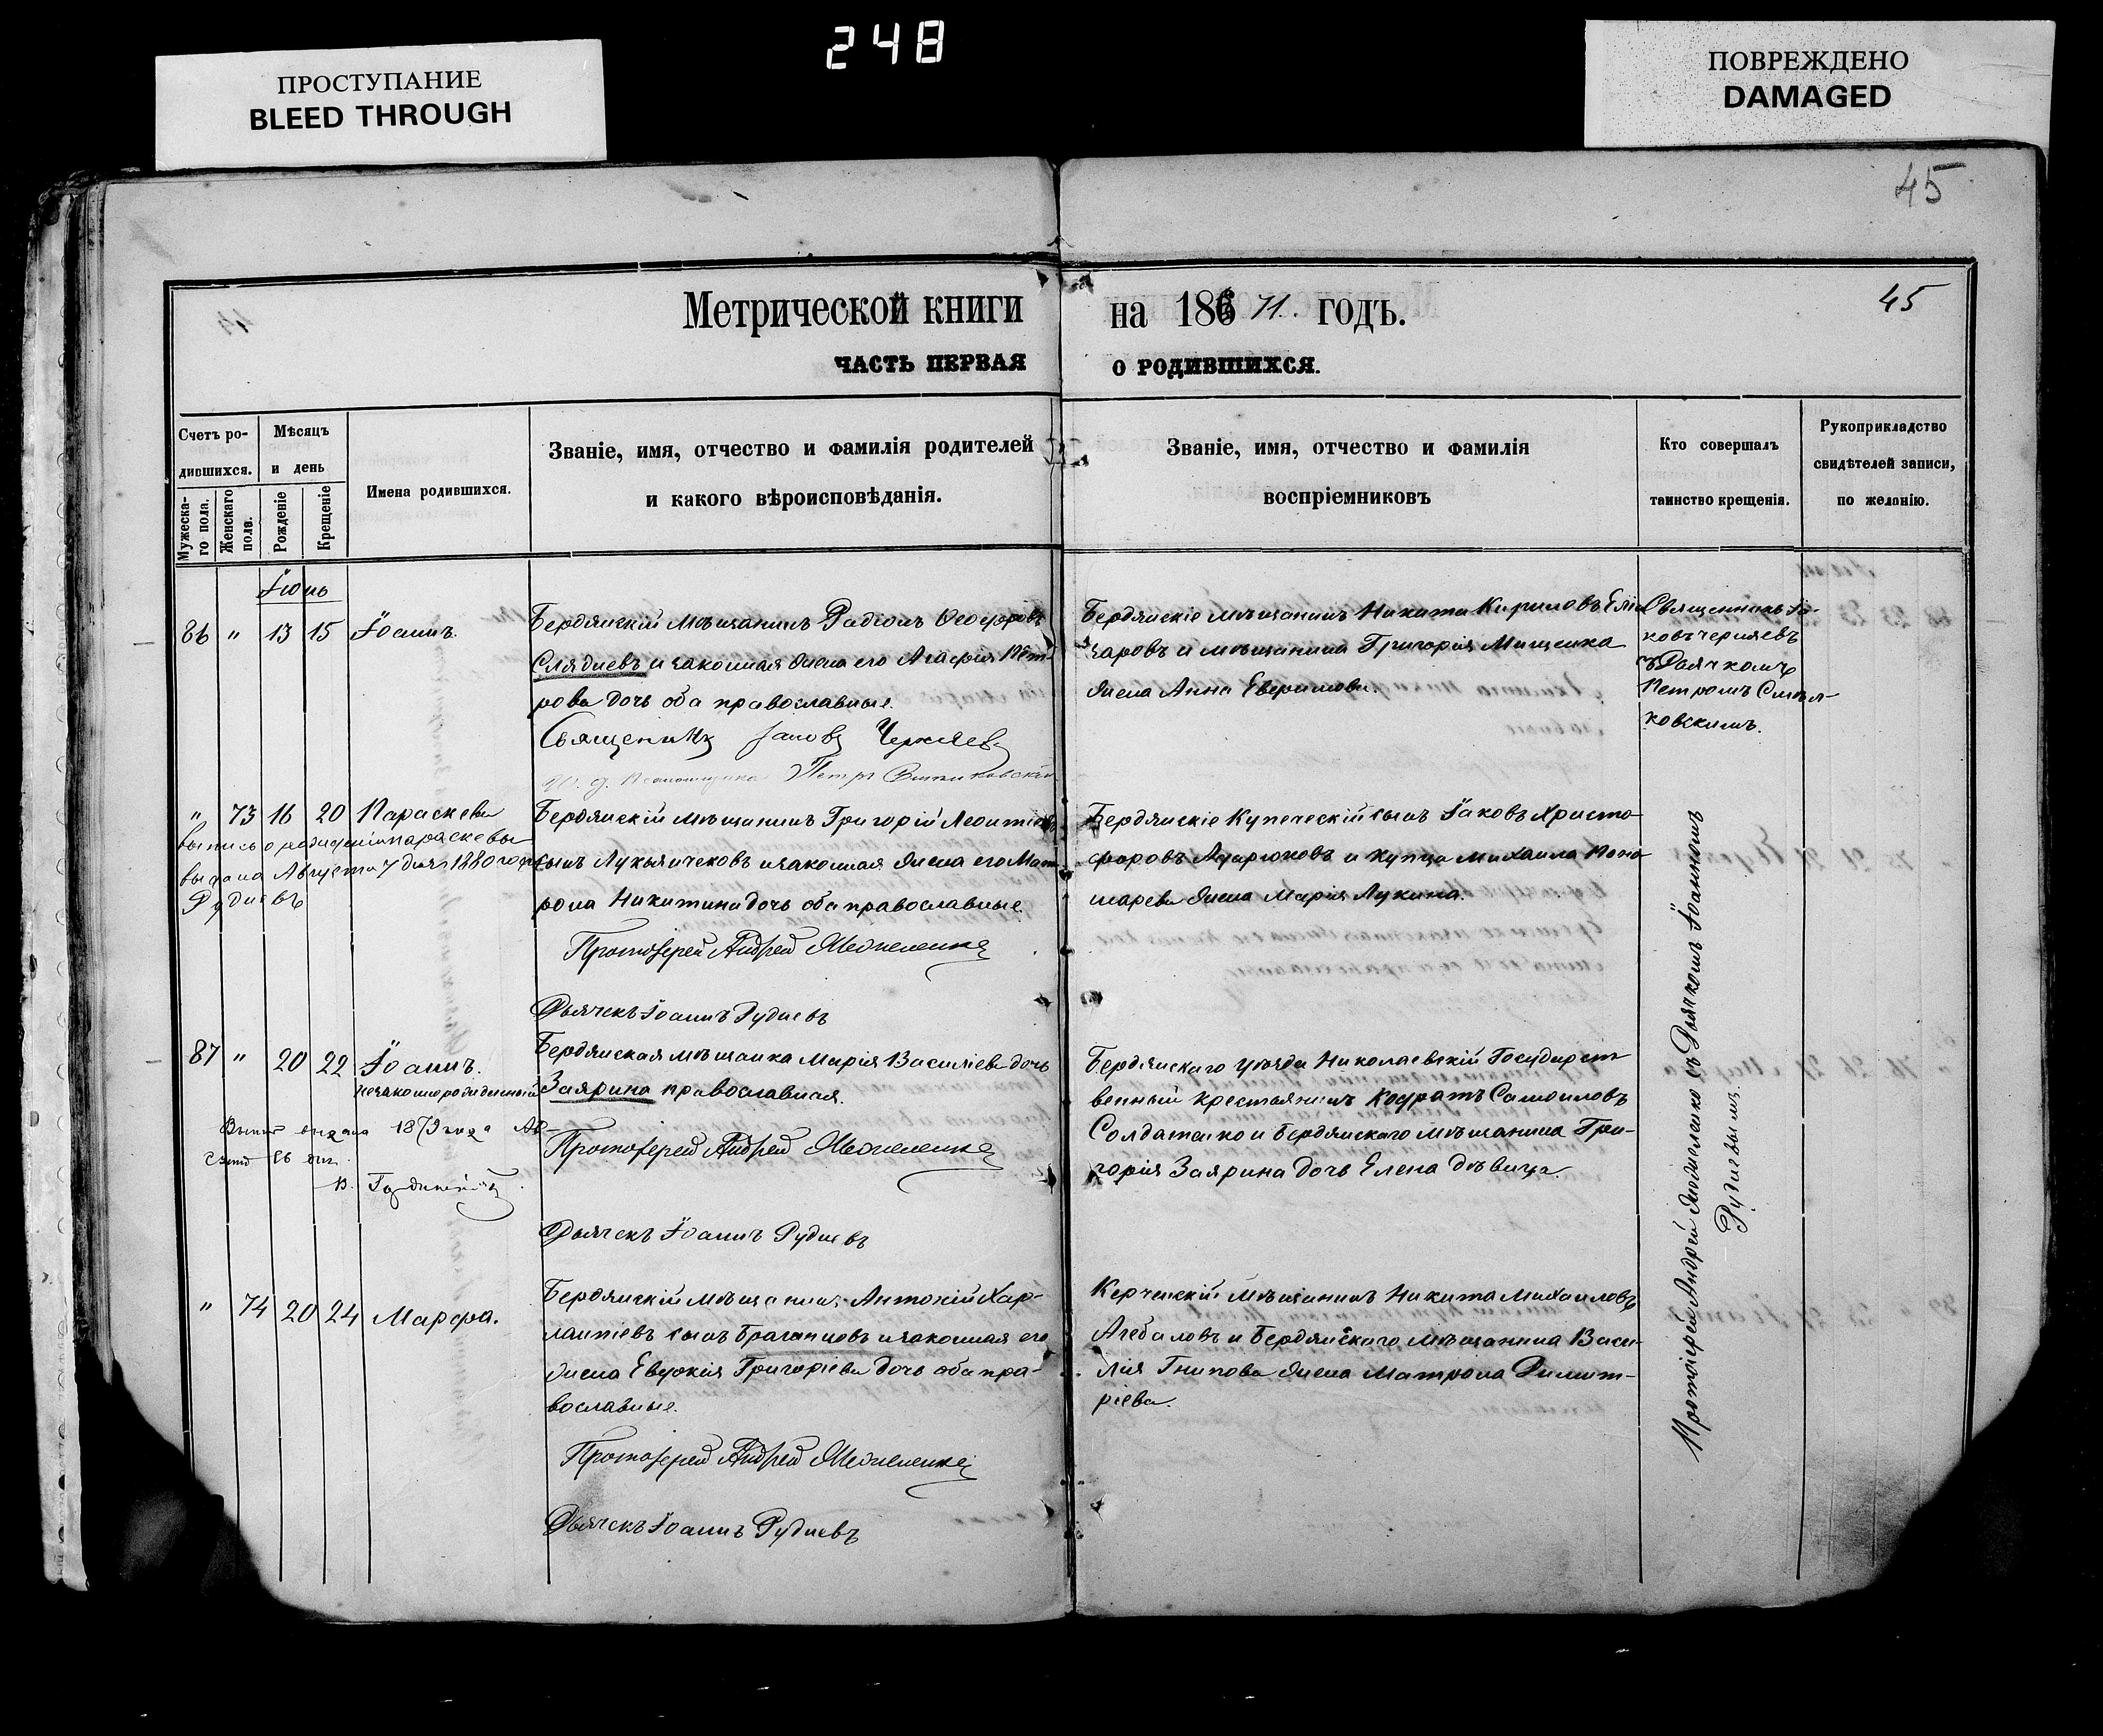 248
ПРОСТУПАНИЕ
BLEED THROUGH
ПОВРЕЖДЕНО
DAMAGED
45
45
Метрической книги на 18671. годъ.
ЧАСТЬ ПЕРВАЯ О РОДИВШИХСЯ.
Счетъ ро-
дившихся.
Мужеска-
го пола.
Женскаго
пола.
Мѣсяцъ
и день
Рожденіе
Крещеніе
Имена родившихся.
Званіе, имя, отчество и фамилія родителей
и какого вѣроисповѣданія.
Званіе, имя, отчество и фамилія
воспріемниковъ
Кто совершалъ
таинство крещенія.
Рукоприкладство
свидѣтелей записи,
по желанію.
Іюнь
86 " 13 15 Іоаннъ.
Бердянскій мѣщанинъ Радіонъ Ѳеодоровъ
Слядневъ и законная жена его Агафія Пет-
рова дочь оба православные.
Священникъ Іаковъ Черняевъ
Петръ
Бердянскіе мѣщанинъ Никита Кириловъ
заровъ и мѣщанина Григорія Мищенка
жена Анна
Священникъ Іа-
ковъ Черняевъ
съ Дьячкомъ
Петромъ
ковскимъ.
" 73 16 20 Параскева
выпись о рожденіи Параскевы
выдана Августа 7 дня 1880 года
Рудневъ
Бердянскій мѣщанинъ Григорій Леонтіевъ
сынъ Лукьянчековъ и законная жена его Мат-
рона Никитина дочь оба православные.
Протоіерей Андрей
Дьячекъ Іоаннъ Рудневъ
Бердянскіе Купеческій сынъ Іаковъ Христо-
форовъ и купца Михаила
жена Марія Лукина.
87 " 20 22 Іоаннъ.
незаконнорожденный
выдана 1879 года
Бердянская мѣщанка Марія Василіева дочь
Заярина православная.
Протоіерей Андрей
Дьячекъ Іоаннъ Рудневъ
Бердянскаго уѣзда Николаевскій Государст-
венный крестьянинъ Кодратъ Самоиловъ
Солдатенко и Бердянскаго мѣщанина Гри-
горія Заярина дочь Елена дѣвица.
" 74 20 24 Марфа.
Бердянскій мѣщанинъ Антоній Хар-
лампіевъ сынъ Браганцовъ и законная его
жена Евдокія Григоріева дочь оба пра-
вославные.
Протоіерей Андрей
Дьячекъ Іоаннъ Рудневъ
Керченскій мѣщанинъ Никита Михаиловъ
и Бердянскаго мѣщанина Васи-
лія жена Матрона Димит-
ріева.
Протоіерей Андрей съ Дьячкомъ Іоанномъ
Рудневымъ